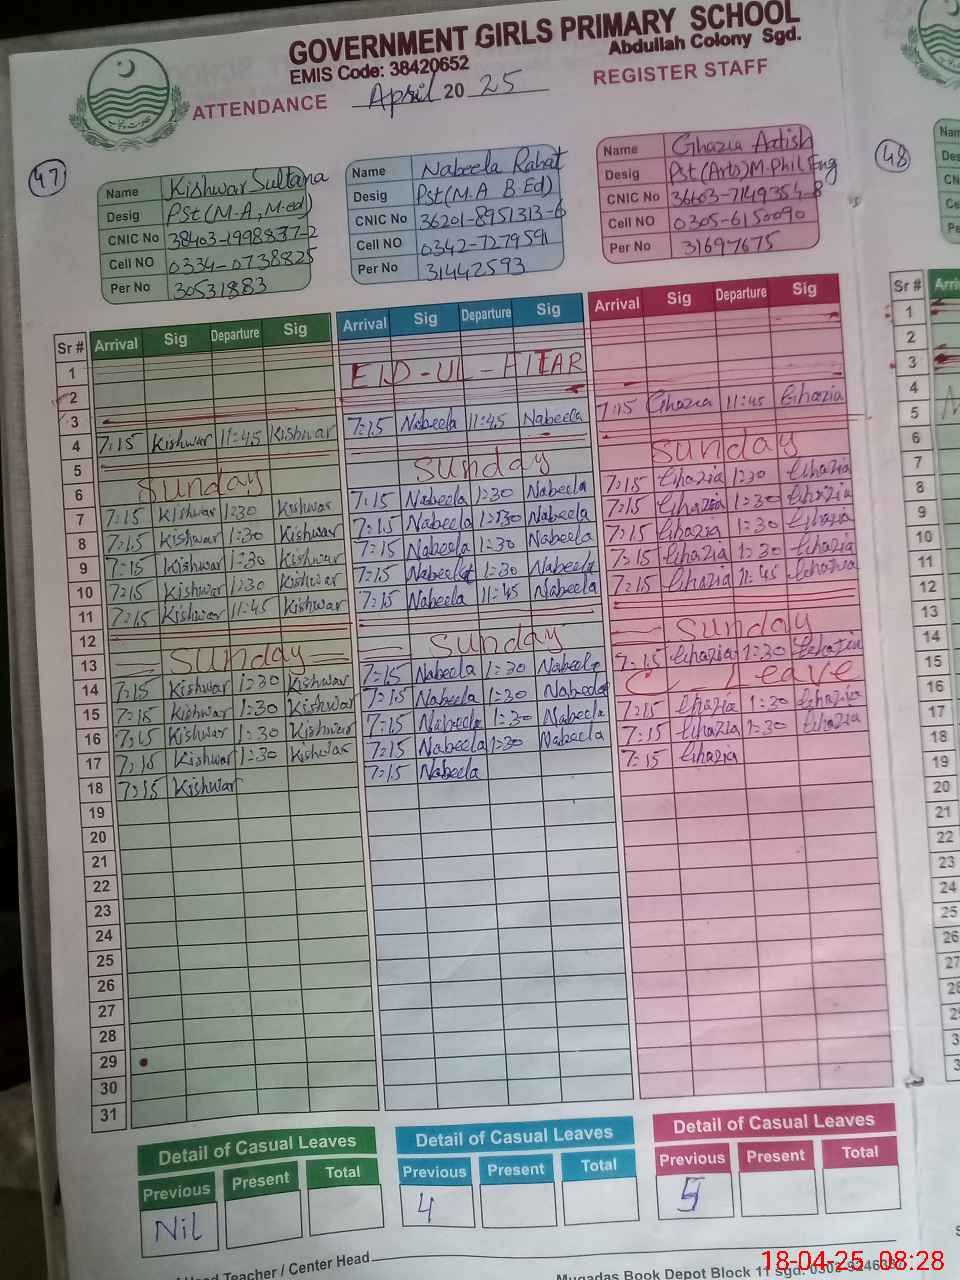 GOVERNMENT GIRLS PRIMARY SCHOOL
EMIS Code: 38420652 Abdullah Colony Sgd.
ATTENDANCE April 20 25 REGISTER STAFF
47
Name Kishwar Sultana
Desig Pst (M.A, M.ed)
CNIC No 38403-1998837-2
Cell NO 0334-0738825
Per No 30531883
Name Nabeela Rahat
Desig Pst (M.A B.Ed)
CNIC No 36201-8951313-6
Cell NO 0342-7279591
Per No 31442593
Name Ghazia Aatish
Desig Pst (Arts) M.Phil Eng
CNIC No 36603-7149354-8
Cell NO 0305-6150090
Per No 31697675
48
Sr # Arrival Sig Departure Sig Arrival Sig Departure Sig Arrival Sig Departure Sig
1 EID-UL-FITAR
2
3
4 7:15 Kishwar 11:45 Kishwar 7:15 Nabeela 11:45 Nabeela 7:15 Ghazia 11:45 Ghazia
5
6 Sunday Sunday Sunday
7 7:15 Kishwar 1:30 Kishwar 7:15 Nabeela 1:30 Nabeela 7:15 Ghazia 1:30 Ghazia
8 7:15 Kishwar 1:30 Kishwar 7:15 Nabeela 1:30 Nabeela 7:15 Ghazia 1:30 Ghazia
9 7:15 Kishwar 1:30 Kishwar 7:15 Nabeela 1:30 Nabeela 7:15 Ghazia 1:30 Ghazia
10 7:15 Kishwar 1:30 Kishwar 7:15 Nabeela 1:30 Nabeela 7:15 Ghazia 1:30 Ghazia
11 7:15 Kishwar 11:45 Kishwar 7:15 Nabeela 11:45 Nabeela 7:15 Ghazia 11:45 Ghazia
12
13 Sunday Sunday Sunday
14 7:15 Kishwar 1:30 Kishwar 7:15 Nabeela 1:30 Nabeela 7:15 Ghazia 1:30 Ghazia
15 7:15 Kishwar 1:30 Kishwar 7:15 Nabeela 1:30 Nabeela C Leave
16 7:15 Kishwar 1:30 Kishwar 7:15 Nabeela 1:30 Nabeela 7:15 Ghazia 1:30 Ghazia
17 7:15 Kishwar 1:30 Kishwar 7:15 Nabeela 1:30 Nabeela 7:15 Ghazia 1:30 Ghazia
18 7:15 Kishwar 7:15 Nabeela 7:15 Ghazia
19
20
21
22
23
24
25
26
27
28
29
30
31
Detail of Casual Leaves Detail of Casual Leaves Detail of Casual Leaves
Previous Present Total Previous Present Total Previous Present Total
Nil 4 5
Head Teacher / Center Head
Muqadas Book Depot Block 11 sgd.
Sr #
1
2
3
4
5
6
7
8
9
10
11
12
13
14
15
16
17
18
19
20
21
22
23
24
25
26
27
28
18-04-25 08:28